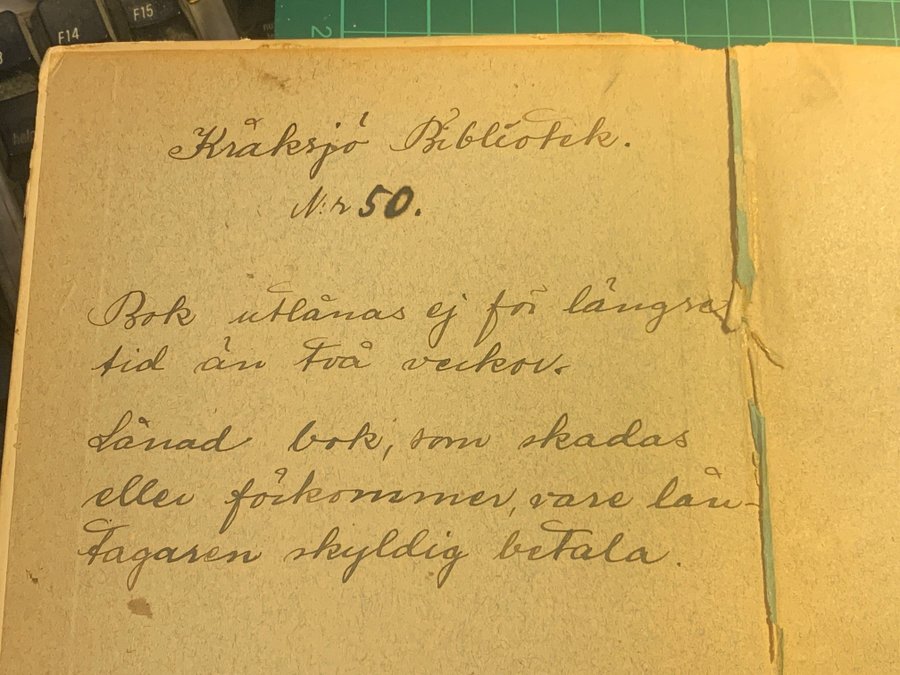 F14
F15
2
Kråksjö Bibliotek.
N:r 50.
Bok utlånas ej för längre
tid än två veckor.
Lånad bok, som skadas
eller förkommer, vare lån-
tagaren skyldig betala.